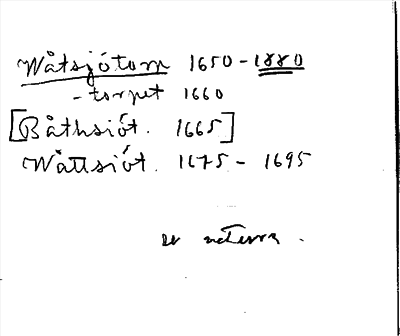 Wåtsjötorp 1650-1880
-torpet 1660
[Båthsiöt. 1665]
Wåttsiöt. 1675-1695
se